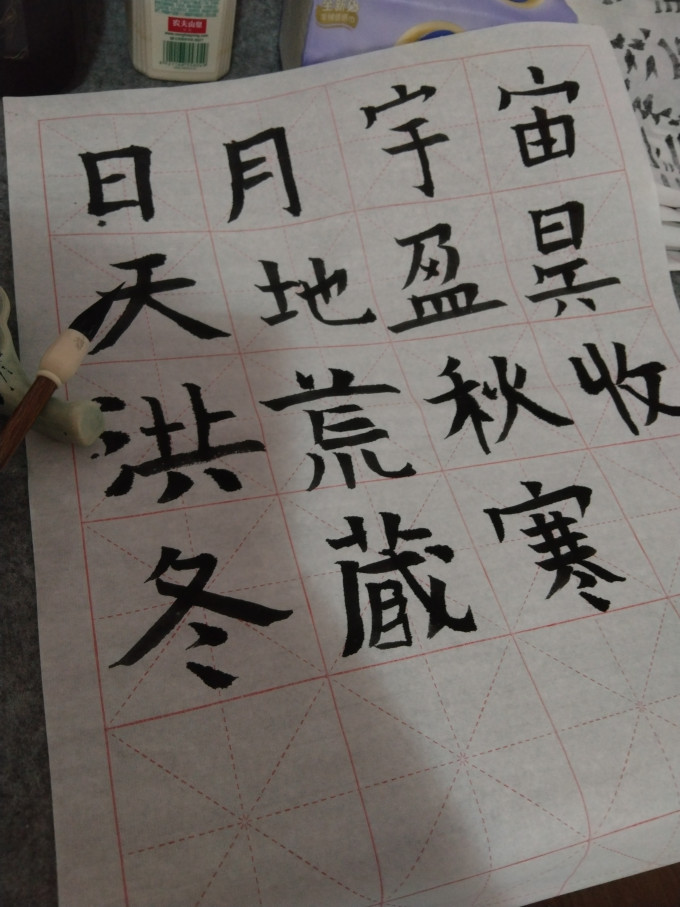 农夫山泉
日月宇宙
天地盈昃
洪荒秋收
冬蔵寒